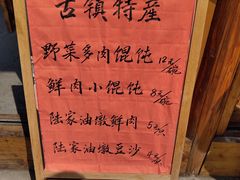 古镇特産
野菜多肉馄饨 12元/碗
鲜肉小馄饨 8元/碗
陆家油墩鲜肉 5元/只
陆家油墩豆沙 4元/只